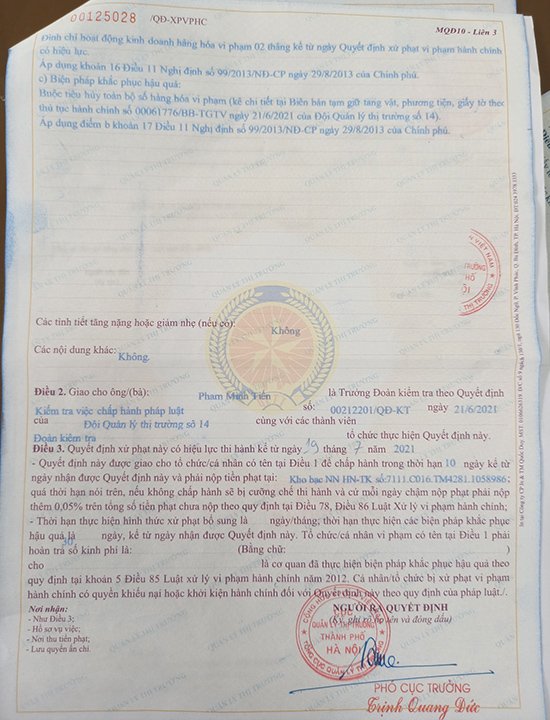 00125028 /QĐ-XPVPHC
MQĐ10 - Liên 3
Đình chỉ hoạt động kinh doanh hàng hóa vi phạm 02 tháng kể từ ngày Quyết định xử phạt vi phạm hành chính
có hiệu lực.
Áp dụng khoản 16 Điều 11 Nghị định số 99/2013/NĐ-CP ngày 29/8/2013 của Chính phủ.
c) Biện pháp khắc phục hậu quả:
Buộc tiêu hủy toàn bộ số hàng hóa vi phạm (kê chi tiết tại Biên bản tạm giữ tang vật, phương tiện, giấy tờ theo
thủ tục hành chính số 00061776/BB-TGTV ngày 21/6/2021 của Đội Quản lý thị trường số 14).
Áp dụng điểm b khoản 17 Điều 11 Nghị định số 99/2013/NĐ-CP ngày 29/8/2013 của Chính phủ.
Các tình tiết tăng nặng hoặc giảm nhẹ (nếu có): Không
Các nội dung khác: Không.
Điều 2. Giao cho ông/(bà): Phạm Minh Tiến là Trưởng Đoàn kiểm tra theo Quyết định
Kiểm tra việc chấp hành pháp luật số: 00212201/QĐ-KT ngày 21/6/2021
của Đội Quản lý thị trường số 14 cùng với các thành viên
Đoàn kiểm tra tổ chức thực hiện Quyết định này.
Điều 3. Quyết định xử phạt này có hiệu lực thi hành kể từ ngày 19 tháng 7 năm 2021
- Quyết định này được giao cho tổ chức/cá nhân có tên tại Điều 1 để chấp hành trong thời hạn 10 ngày kể từ
ngày nhận được Quyết định này và phải nộp tiền phạt tại: Kho bạc NN HN-TK số:7111.C016.TM4281.1058986;
quá thời hạn nói trên, nếu không chấp hành sẽ bị cưỡng chế thi hành và cứ mỗi ngày chậm nộp phạt phải nộp
thêm 0,05% trên tổng số tiền phạt chưa nộp theo quy định tại Điều 78, Điều 86 Luật Xử lý vi phạm hành chính;
- Thời hạn thực hiện hình thức xử phạt bổ sung là ngày/tháng; thời hạn thực hiện các biện pháp khắc phục
hậu quả là 30 ngày, kể từ ngày nhận được Quyết định này. Tổ chức/cá nhân vi phạm có tên tại Điều 1 phải
hoàn trả số kinh phí là: (Bằng chữ: )
cho là cơ quan đã thực hiện biện pháp khắc phục hậu quả theo
quy định tại khoản 5 Điều 85 Luật xử lý vi phạm hành chính năm 2012. Cá nhân/tổ chức bị xử phạt vi phạm
hành chính có quyền khiếu nại hoặc khởi kiện hành chính đối với Quyết định này theo quy định của pháp luật./.
Nơi nhận:
- Như Điều 3;
- Hồ sơ vụ việc;
- Nơi thu tiền phạt;
- Lưu quyển ấn chỉ.
NGƯỜI RA QUYẾT ĐỊNH
(Ký, ghi rõ họ tên và đóng dấu)
CỤC
QUẢN LÝ THỊ TRƯỜNG
THÀNH PHỐ
HÀ NỘI
TỔNG CỤC QUẢN LÝ THỊ TRƯỜNG
PHÓ CỤC TRƯỞNG
Trịnh Quang Đức